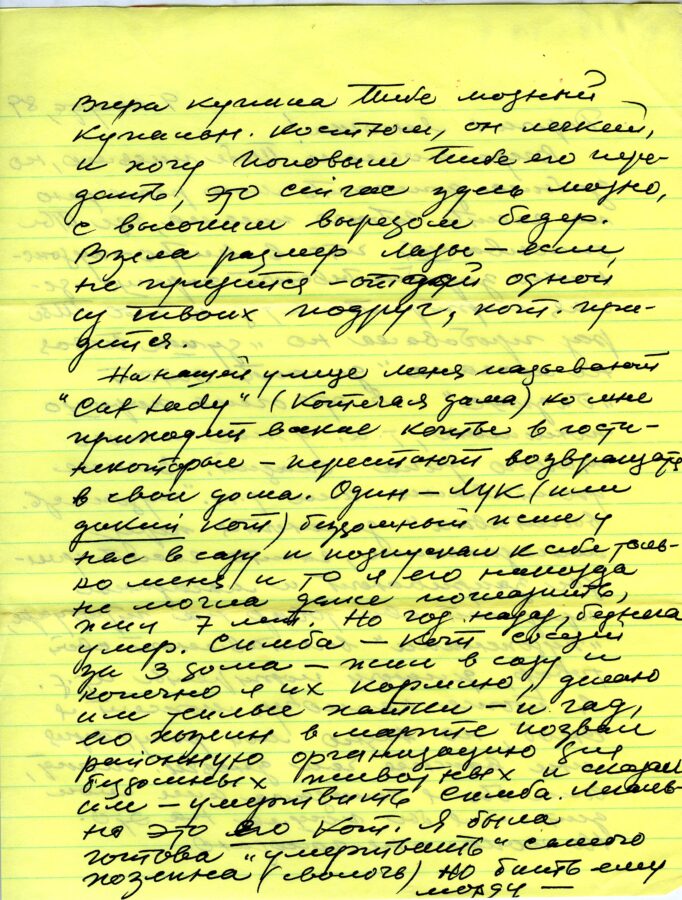 Вчера купила Тебе модный
купальн. костюм, он легкий,
и хочу Поповым Тебе его пере-
дать, это сейчас здесь модно,
с высоким вырезом бедер.
Взяла размер Лизы – если
не придется – отдай одной
из твоих подруг, кот. при-
дется.
На нашей улице меня называют
"Cat Lady" (Кошечая дама) ко мне
приходят всякие коты в гости
некоторые – перестают возвращаться
в свои дома. Один – Лук (или
дикий кот) бездомный жил у
нас в саду и подпускал к себе толь-
ко меня и то я его никогда
не могла даже погладить,
жил 7 лет. Но год назад, бедняга
умер. Симба – кот соседей
за 3 дома – жил в саду и
конечно я их кормлю, делаю
им теплые хатки – и гад,
его хозяин в марте позвал
районную организацию для
бездомных животных и сказал
им – умертвить Симба.
но это его кот. Я была
готова "умертвить" самого
хозяина (сволочь) но бить ему
морду –